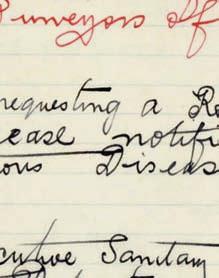 Purveyors off
requesting a Re
ease notifi
ious Diseas
cutive Sanitary